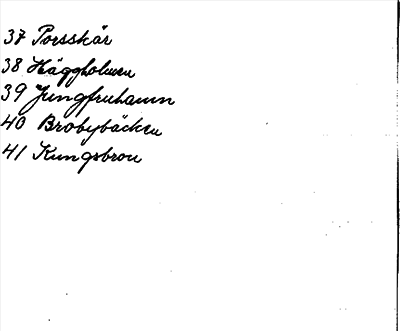 37 Porsskär
38 Häggholmen
39 Jungfruhamn
40 Brobybäcken
41 Kungsbron